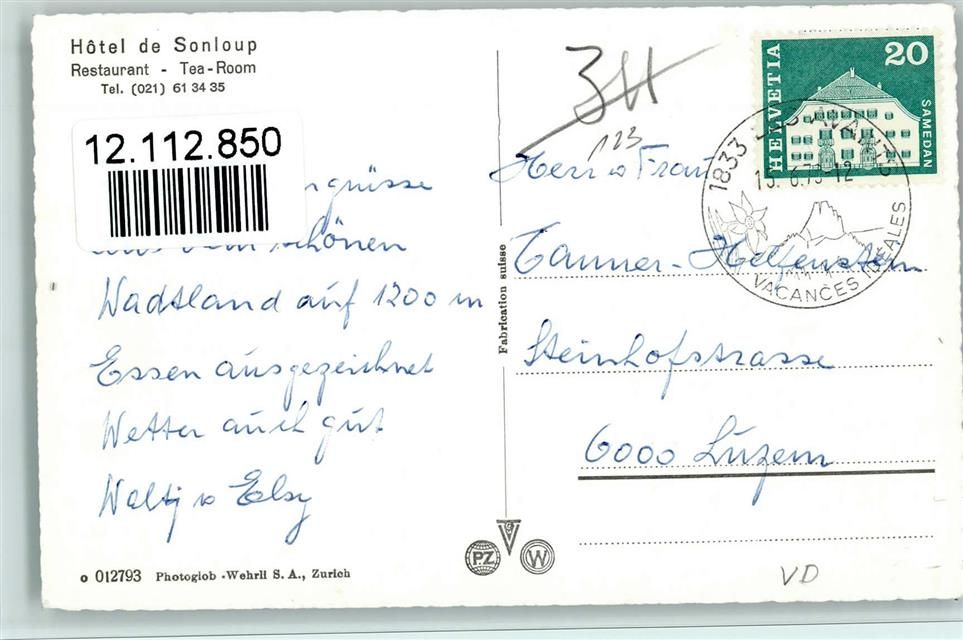 Hôtel de Sonloup
Restaurant - Tea-Room
Tel. (021) 61 34 35
12.112.850
aus dem schönen
Wadtland auf 1200 m
Essen ausgezeichnet
Wetter auch gut
Waltj u Elsy
o 012793 Photoglob - Wehrli S. A., Zurich
Fabrication suisse
PZ
V
G
W
123
HELVETIA
20
SAMEDAN
1833 LES AVANTS
15. 6.73-12
VACANCES IDEALES
Herr u Frau
Tanner-Helfenstein
Steinhofstrasse
6000 Luzern
VD